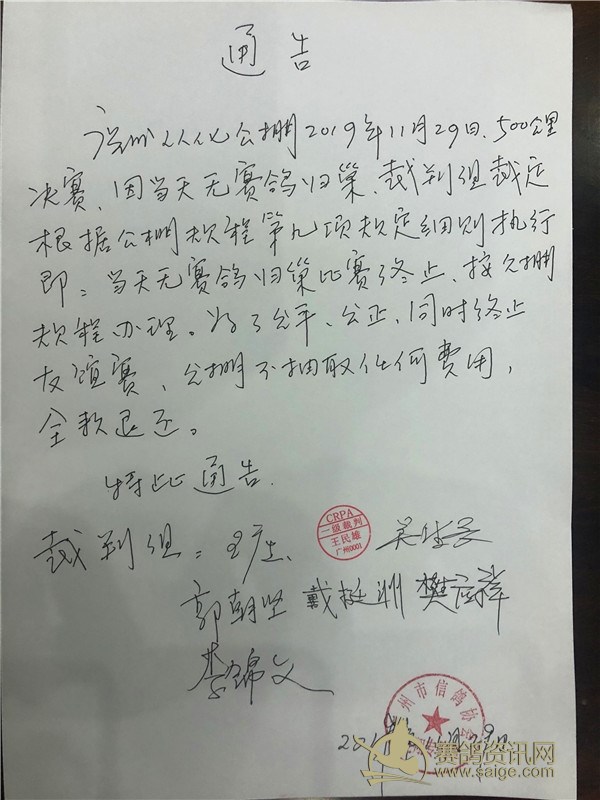 通告
广州从化公棚2019年11月29日、500公里
决赛、因当天无赛鸽归巢、裁判组裁定
根据公棚规程第九项规定细则执行
即：当天无赛鸽归巢比赛终止、按公棚
规程办理。为了公平、公正、同时终止
友谊赛、公棚不抽取任何费用，
全款退还。
特此通告.
裁判组：
CRPA
一级裁判
王民雄
广州0001
郭朝坚 戴挺洲 樊
李锦文
州市信鸽协会
赛鸽资讯网
www.saige.com